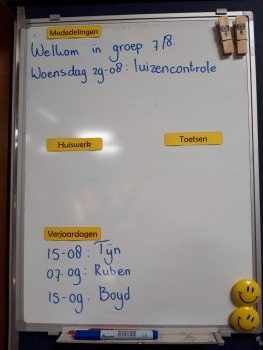 Mededelingen
Welkom in groep 7/8.
Woensdag 29-08: luizencontrole
Huiswerk
Toetsen
Verjaardagen
15-08: Tijn
07-09: Ruben
15-09: Boyd